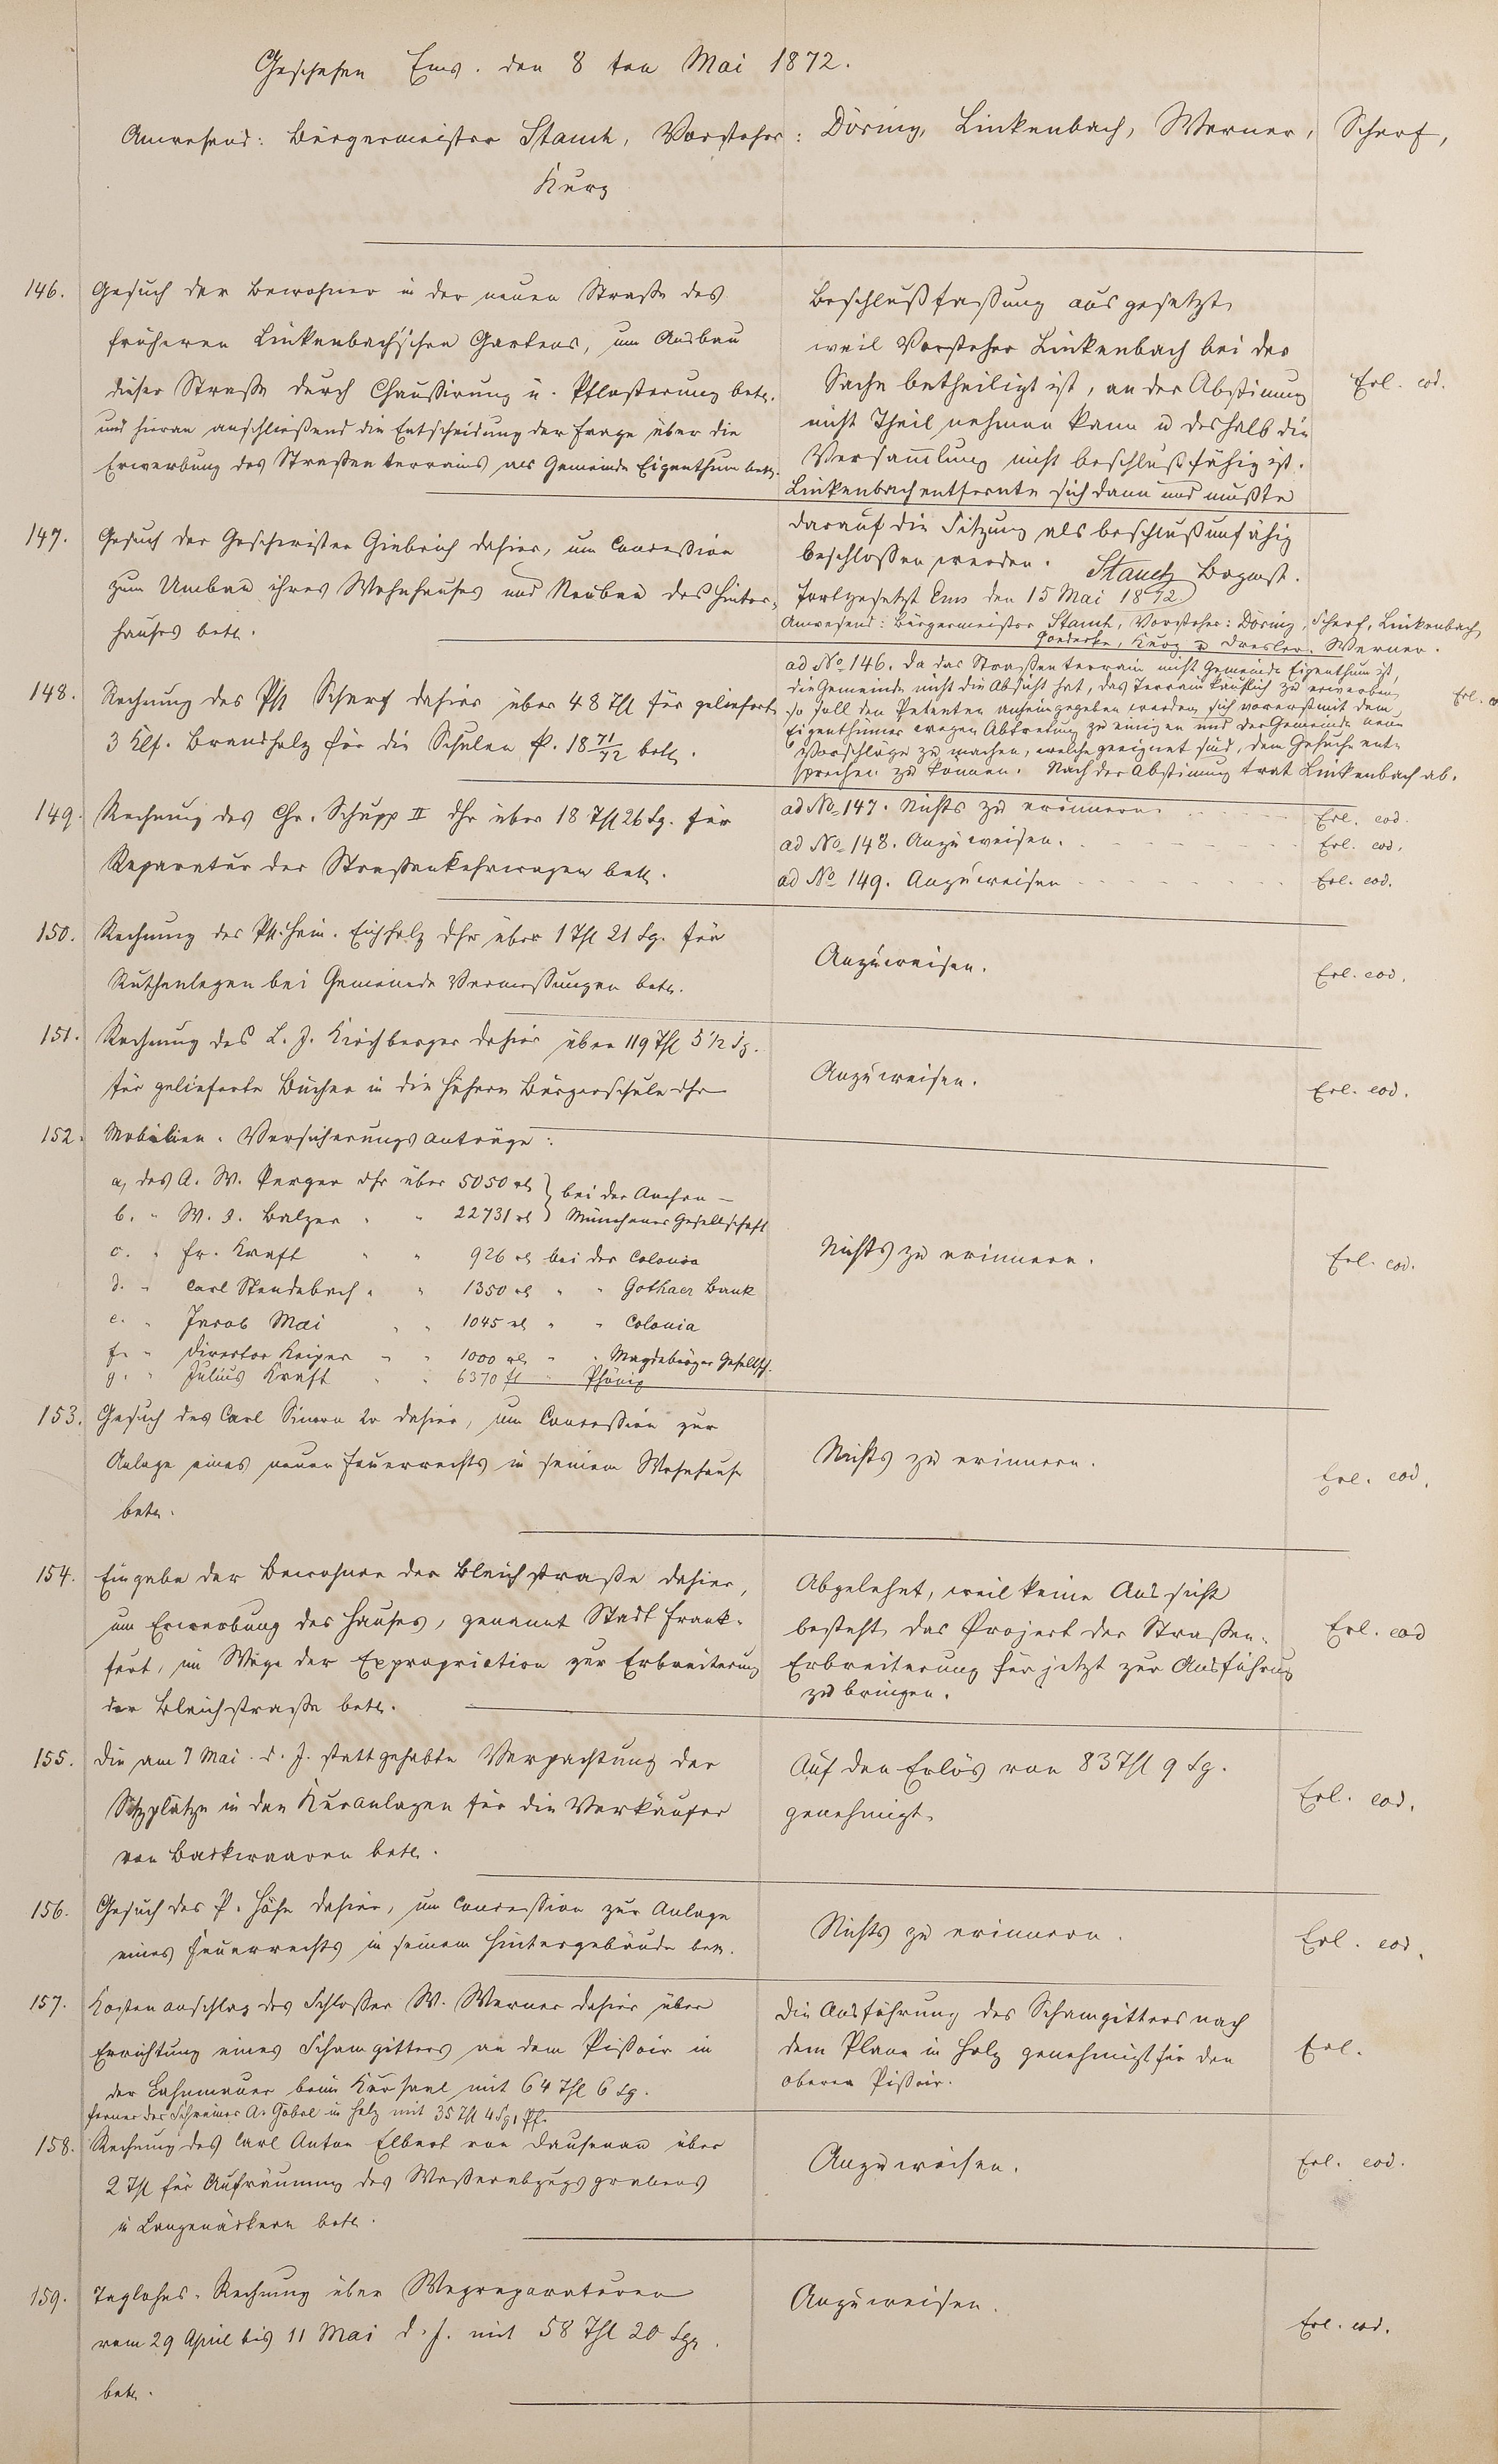 Geschehen Ems. den 8 ten Mai 1872.
Anwesend: Bürgermeister Stauch, Vorsteher: Döring, Linkenbach, Werner, Scherf,
Kurz
146. Gesuch der Bewohner in der neuen Straße des
früheren Linkenbach'schen Gartens, um Ausbau
dieser Straße durch Chaussirung u. Pflasterung betr.
und hieran anschließend die Entscheidung der Frage über die
Erwerbung des Straßenterrains als Gemeinde Eigenthum betr.
Beschlußfaßung ausgesetzt,
weil Vorsteher Linkenbach bei der
Sache betheiligt ist, an der Abstimung
nicht Theil nehmen kann u deshalb die
Versamlung nicht beschlußfähig ist.
Linkenbach entfernte sich dann und mußte
darauf die Sitzung als beschlußunfähig
beschlossen werden. Stauch Bgrmst.
Erl. eod.
Fortgesetzt Ems den 15 Mai 1872
Anwesend: Bürgermeister Stauch, Vorsteher: Döring, Scherf, Linkenbach,
Goedecke, Kurz u Dresler. Werner.
ad No 146. Da das Straßenterrain nicht Gemeinde Eigenthum ist,
die Gemeinde nicht die Absicht hat, das Terrain käuflich zu erwerben,
so soll den Petenten anheimgegeben werden sich vorerst mit dem
Eigenthümer wegen Abtretung zu einigen und der Gemeinde neue
Vorschläge zu machen, welche geeignet sind, dem Gesuche ent-
sprechen zu können. Nach der Abstimung trat Linkenbach ab.
Erl. eod.
147. Gesuch der Geschwister Giebrich dahier, um Concession
zum Umbau ihres Wohnhauses und Neubau des Hinter-
hauses betr.
ad No 147. Nichts zu erinnern.
Erl. eod.
148. Rechnung des Ph Scherf dahier über 48 Thl für gelieferte
3 Klf. Brandholz für die Schulen p. 18 71/72 betr.
ad No 148. Anzuweisen.
Erl. eod.
149. Rechnung des Chr. Schupp II dhr über 18 Thl 26 Sg. für
Reparatur der Straßenkehrwagen betr.
ad No 149. Anzuweisen
Erl. eod.
150. Rechnung des Ph. Hein. Eichholz dhr über 1 Thl 21 Sg. für
Ruthenlegen bei Gemeinde Vermessungen betr.
Anzuweisen.
Erl. eod.
151. Rechnung des L. J. Kirchberger dahier über 119 Thl 5 1/2 Sg.
für gelieferte Bücher in die höhere Bürgerschule dhr
Anzuweisen.
Erl. eod.
152. Mobilien. Versicherungsanträge:
a, des A. W. Berger dhr über 5050 rl } bei der Aachen –
b. " W. J. Balzer " " 22731 rl } Münchener Gesellschaft
c. " Fr. Kraft " " 926 rl bei der Colonia
d. " Carl Stendebach " " 1350 rl " " Gothaer Bank
e. " Jacob Mai " " 1045 rl " " Colonia
f. " Director Keiper " " 1000 rl " " Magdeburger Gesellsch.
g. " Julius Kraft " " 6370 fl " Phönix
Nichts zu erinnern.
Erl. eod.
153. Gesuch des Carl Simon 2r dahier, um Concession zur
Anlage eines neuen Feuerrechts in seinem Wohnhause
betr.
Nichts zu erinnern.
Erl. eod.
154. Eingabe der Bewohner der Bleichstraße dahier,
um Erwerbung des Hauses, genannt Stadt Frank-
furt, im Wege der Expropriation zur Erbreiterung
der Bleichstraße betr.
Abgelehnt, weil keine Aussicht
besteht, das Project der Straßen-
Erbreiterung für jetzt zur Ausführung
zu bringen.
Erl. eod
155. Die am 7 Mai d. J. stattgehabte Verpachtung der
Sitzplätze in den Kuranlagen für die Verkäufer
von Backwaaren betr.
Auf den Erlös von 83 Thl 9 Sg.
genehmigt.
Erl. eod.
156. Gesuch des P. Höhn dahier, um Concession zur Anlage
eines Feuerrechts in seinem Hintergebäude betr.
Nichts zu erinnern.
Erl. eod.
157. Kostenanschlag des Schlosser W. Werner dahier über
Errichtung eines Schamgitters an dem Pissoir in
der Lahnmauer beim Kursaal mit 64 Thl 6 Sg.
ferner des Schreiner A. Göbel in Holz mit 35 Thl 4 Sg 1 Pf.
Die Ausführung des Schamgitters nach
dem Plane in Holz genehmigt für den
oberen Pissoir.
Erl.
158. Rechnung des Carl Anton Elbert von Dausenau über
2 Thl für Aufräumung des Wasserabzugsgrabens
in Langenäckern betr.
Anzuweisen.
Erl. eod.
159. Taglohns-Rechnung über Wegreparaturen
vom 29 April bis 11 Mai d. J. mit 58 Thl 20 Sgr.
betr.
Anzuweisen.
Erl. eod.